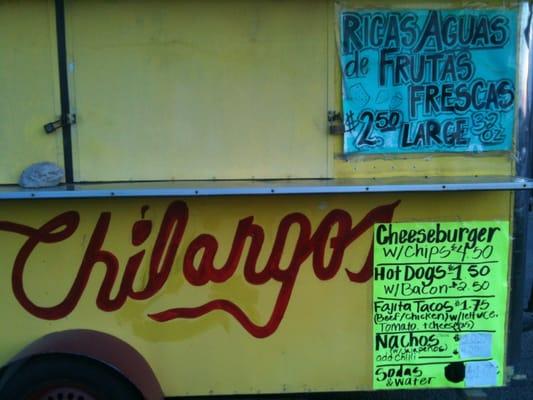 RICAS AGUAS
de FRUTAS
FRESCAS
$2.50 LARGE 32 oz
Chilangos
Cheeseburger
w/Chips $4.50
Hot Dogs $1.50
w/Bacon $2.50
Fajita Tacos $1.75
(Beef/chicken) w/lettuce.
Tomato. + cheese
Nachos
(w/Jalapeños)
add chili
Sodas
& water